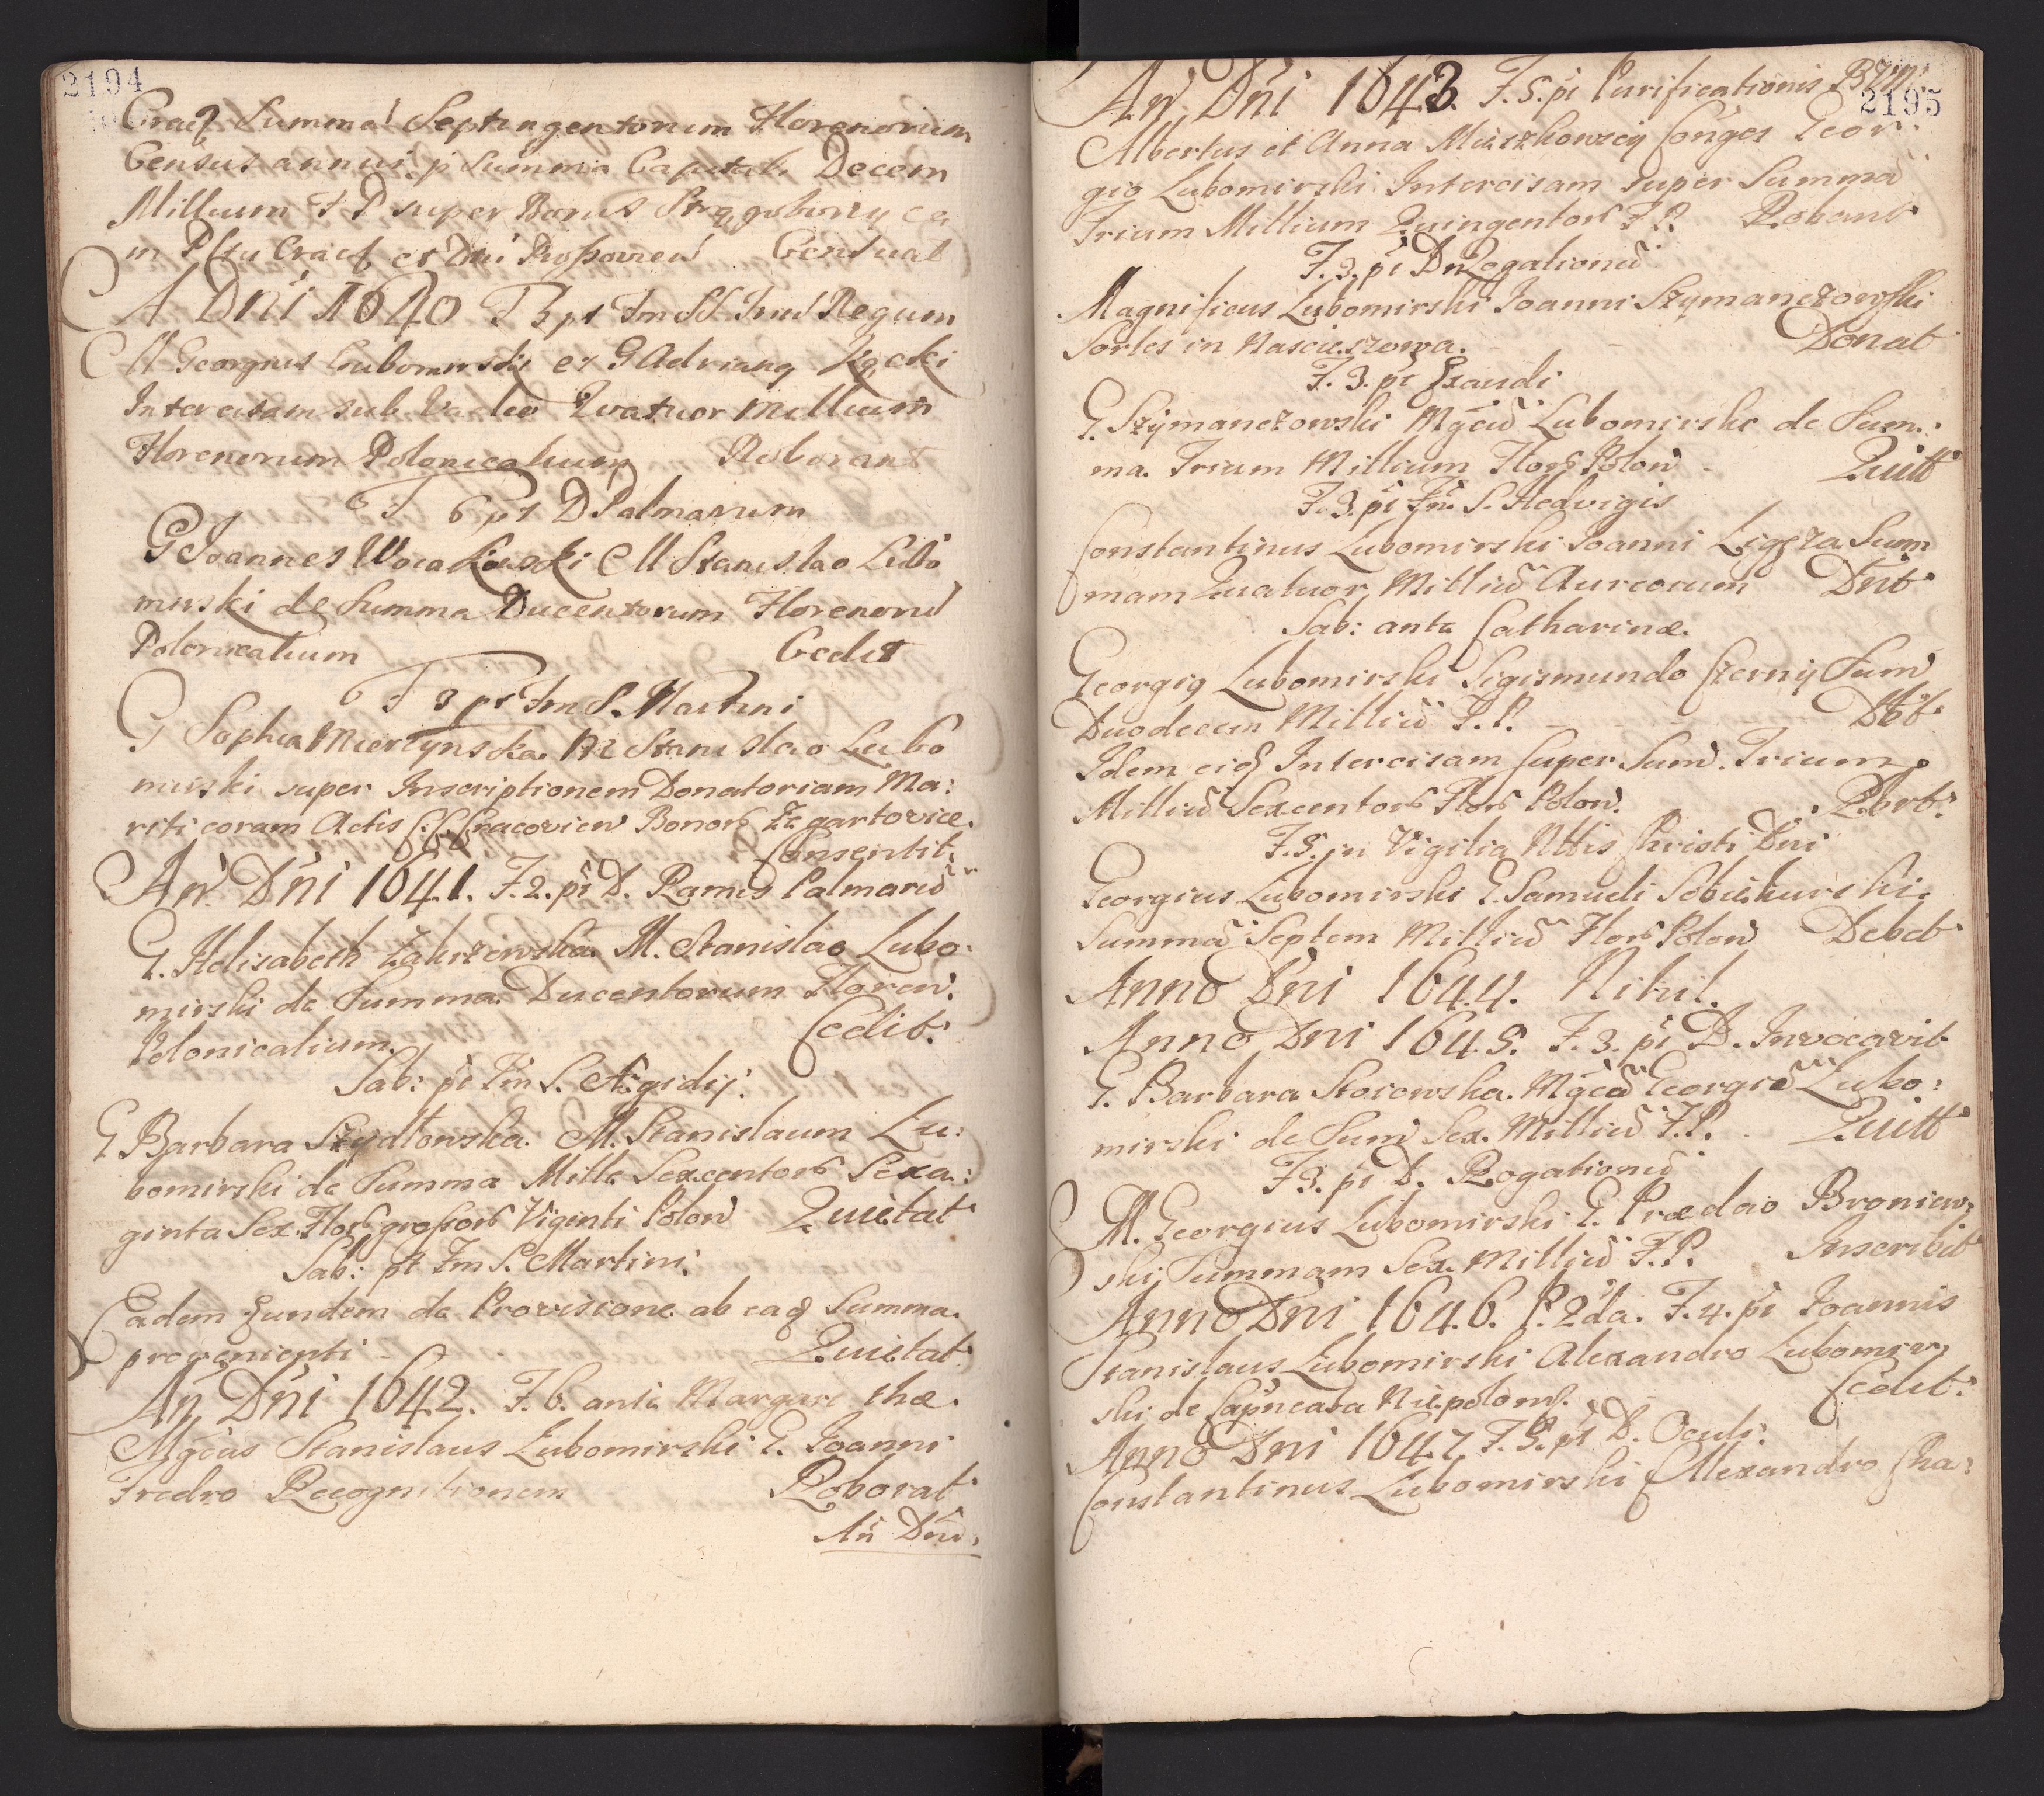 2194
Cracẛ Summa Septingentorum Florenorum
Census annui, p Summa Capitali Decem
Millium F P super Bonis
in Pttu Cracẛ et Dni Censuat
A Dni 1640 F 3 pt Fm SS. Trium Regum
M Georgius Lubomirski et G Adrianq Łęcki
Intercisam sub Vadio Quatuor Millium
Florenorum Polonicalium Roborant
F 6 pt D Palmarum
G Joannes M Stanislao Lubo
mirski de Summa Ducentorum Florenorū
Polonicalium Cedit
F 3 pt Fm S. Martini
G Sophia Mierzynska M Stanislao Lubo
mirski super Inscriptionem Donatoriam Ma:
riti coram Actis C. C. Cracovien Bonorẛ Zegartovice.
Consentit.
An. Dni 1641. F. 2. pt D. Ramis Palmarū
G. Helisabeth Zakrzewska M. Stanislao Lubo:
mirski de Summa Ducentorum Floren.
Polonicalium. Cedit.
Sab: pt Fm S. Ægidij.
G Barbara Szydłowska. M. Stanislaum Lu:
bomirski de Summa Mille Sexcentorẛ Sexa:
ginta Sex Florẛ grossorẛ Viginti Polon Quietat
Sab: pt Fm S. Martini.
Eadem Eundem de Provisione ab eaq Summa.
provenienti - Quietat
An Dni 1642. F. 6. ante Margare thæ.
Mgcus Stanislaus Lubomirski G. Joanni
Fredro Recognitionem Roborat
An Dni.
2195
An. Dni 1643. F. 5. pt Purificationis BVM.
Albertus et Anna Miiszkowscy Conges Geor
gio Lubomirski Intercisam super Summa
Trium Millium Quingentorẛ F P. Robant
F. 3. pt D Rogationū
Magnificus Lubomirski Joanni Szymanczowski
Sortes in Nascieszowa. - Donat
F. 3. pt Exaudi
G. Szymanczowski Mgcū Lubomirski de Sum:
ma Trium Millium Florẛ Polon - Quitt
F. 3. pt Fm S. Hedvigis
Constantinus Lubomirski Joanni Ligęza Sum
mam Quatuor Milliū Aureorum Dnt
Sab: ante Catharinæ.
Georgiq Lubomirski Sigismundo Czerny Sum
Duodecim Milliū F. P. - Dbt.
Idem eidẛ Intercisam super Sum. Trium
Milliū Sexcentorẛ Florẛ Polon. Rbrt.
F. 5. in Vigilia Nttis Christi Dni
Georgius Lubomirski G. Samueli Sobiekurski
Summā Septem Milliū Florẛ Polon Debet
Anno Dni 1644. Nihil.
Anno Dni 1645. F. 3. pt D. Invocavit
G. Barbara Mgcū Georgiū Lubo:
mirski de Sum Sex Milliū F. P. - Quitt
F 3. pt D. Rogationū
M. Georgius Lubomirski G. Prædao Broniew:
ski Summam Sex Milliū F. P. Inscribit
Anno Dni 1646. P. 2da. F. 4. pt Joannis
Stanislaus Lubomirski Alexandro Lubomir
ski de Niepolom. Cedit.
Anno Dni 1647. F. 5. pt D. Oculi.
Constantinus Lubomirski Alexandro Cha: